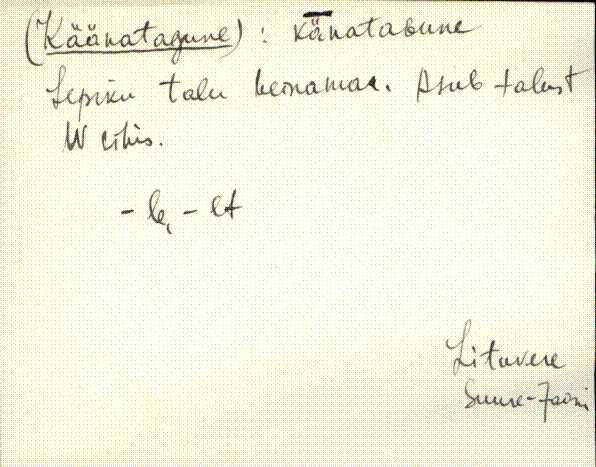 (Käänatagune) : kǟnatagune
Lepiku talu heinamaa. Asub talust
W ehis.
- le, - lt
Litavere
Suure-Jaani